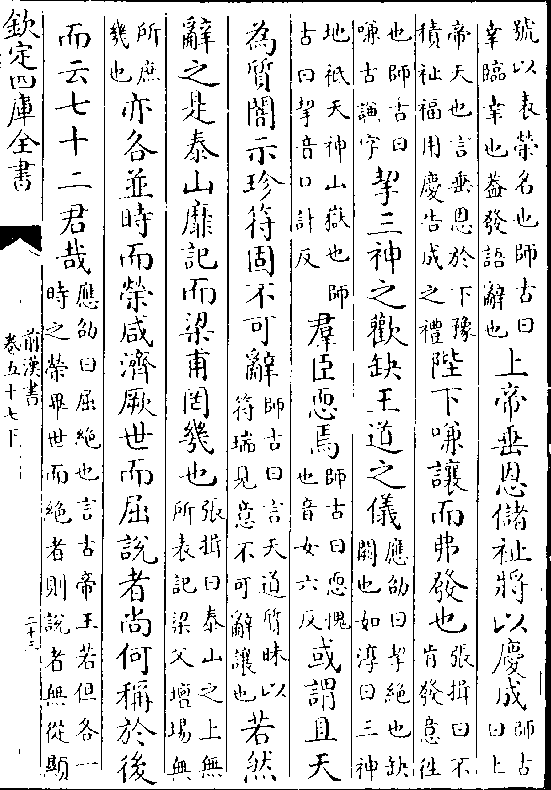 號以表榮名也師古曰
幸臨幸也葢發語辭也
上帝垂恩儲祉將以慶成
師古
曰上
帝天也言垂恩於下豫
積祉福用慶告成之禮
陛下嗛讓而弗發也
張揖曰不
肯發意往
也師古曰
嗛古謙字
挈三神之歡缺王道之儀
應劭曰挈絶也缺
闕也如淳曰三神
地祇天神山嶽也師
古曰挈音口計反
羣臣恧焉
師古曰恧愧
也音女六反
或謂且天
為質闇示珍符固不可辭
師古曰言天道質昧以
符瑞見意不可辭讓也
若然
辭之是泰山靡記而梁甫罔幾也
張揖曰泰山之上無
所表記梁父壇場無
所庶
幾也
亦各並時而榮咸濟厥世而屈說者尚何稱於後
而云七十二君哉
應劭曰屈絶也言古帝王若但各一
時之榮畢世而絶者則說者無從顯
欽定四庫全書
前漢書
卷五十七下
二十三